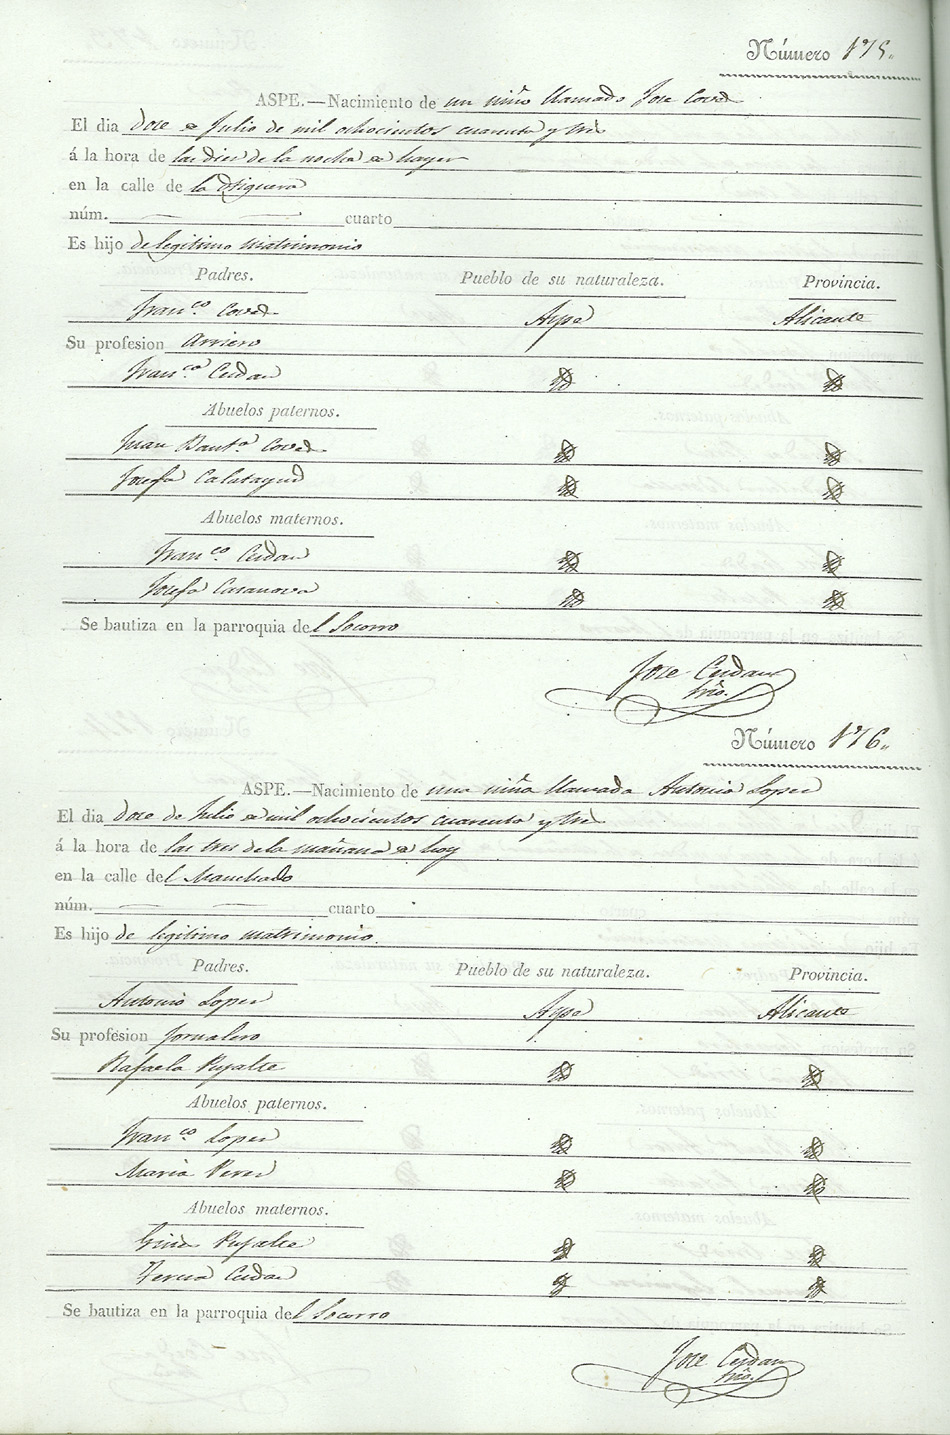 Número 175.
ASPE.—Nacimiento de un niño llamado Jose Cored
El dia doce de Julio de mil ochocientos cuarenta y tres
á la hora de las dies de la noche de hayer
en la calle de la Higuera
núm. cuarto
Es hijo de legitimo matrimonio
Padres. Pueblo de su naturaleza. Provincia.
Franco. Cored Aspe Alicante
Su profesion Arriero
Franca. Cerdan
Abuelos paternos.
Juan Bauta. Cored
Josefa Calatayud
Abuelos maternos.
Franco. Cerdan
Josefa Casanova
Se bautiza en la parroquia del Socorro
Jose Cerdan
Srio.
Número 176.
ASPE.—Nacimiento de una niña llamada Antonia Lopez
El dia doce de Julio de mil ochocientos cuarenta y tres
á la hora de las tres de la mañana de hoy
en la calle del
núm. cuarto
Es hijo de legitimo matrimonio.
Padres. Pueblo de su naturaleza. Provincia.
Antonio Lopez Aspe Alicante
Su profesion Jornalero
Rafaela Pujalte
Abuelos paternos.
Franco. Lopez
Maria Perez
Abuelos maternos.
Pujalte
Teresa Cerdan
Se bautiza en la parroquia del Socorro
Jose Cerdan
Srio.